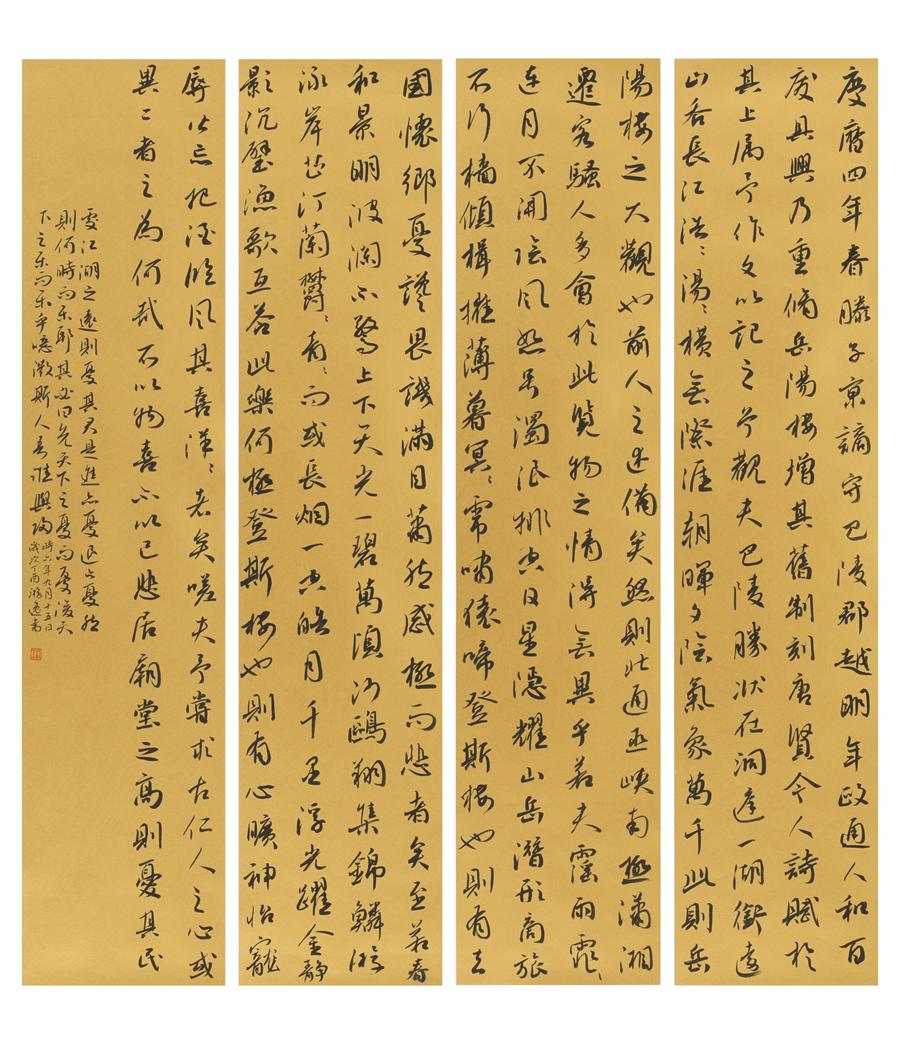 慶曆四年春滕子京謫守巴陵郡越明年政通人和百
廢具興乃重脩岳陽樓增其舊制刻唐賢今人詩賦於
其上属予作文以記之予觀夫巴陵勝狀在洞庭一湖銜遠
山吞長江浩〻湯〻橫無際涯朝暉夕陰氣象萬千此則岳
陽樓之大觀也前人之述備矣然則北通巫峽南極瀟湘
遷客騷人多會於此覽物之情得無異乎若夫霪雨霏〻
連月不開陰風怒号濁浪排空日星隱耀山岳潛形商旅
不行檣傾楫摧薄暮冥〻虎嘯猿啼登斯樓也則有去
國懷鄉憂讒畏譏滿目蕭然感極而悲者矣至若春
和景明波瀾不驚上下天光一碧萬頃沙鷗翔集錦鱗游
泳岸芷汀蘭欝〻青〻而或長烟一空皓月千里浮光躍金静
影沉璧漁歌互答此樂何極登斯樓也則有心曠神怡寵
辱皆忘把酒臨風其喜洋〻者矣嗟夫予嘗求古仁人之心或
異二者之為何哉不以物喜不以己悲居廟堂之高則憂其民
處江湖之遠則憂其君是進亦憂退亦憂然
則何時而樂耶其必曰先天下之憂而憂後天
下之樂而樂乎噫微斯人吾誰與歸
時六年九月十五日
歲次丁酉